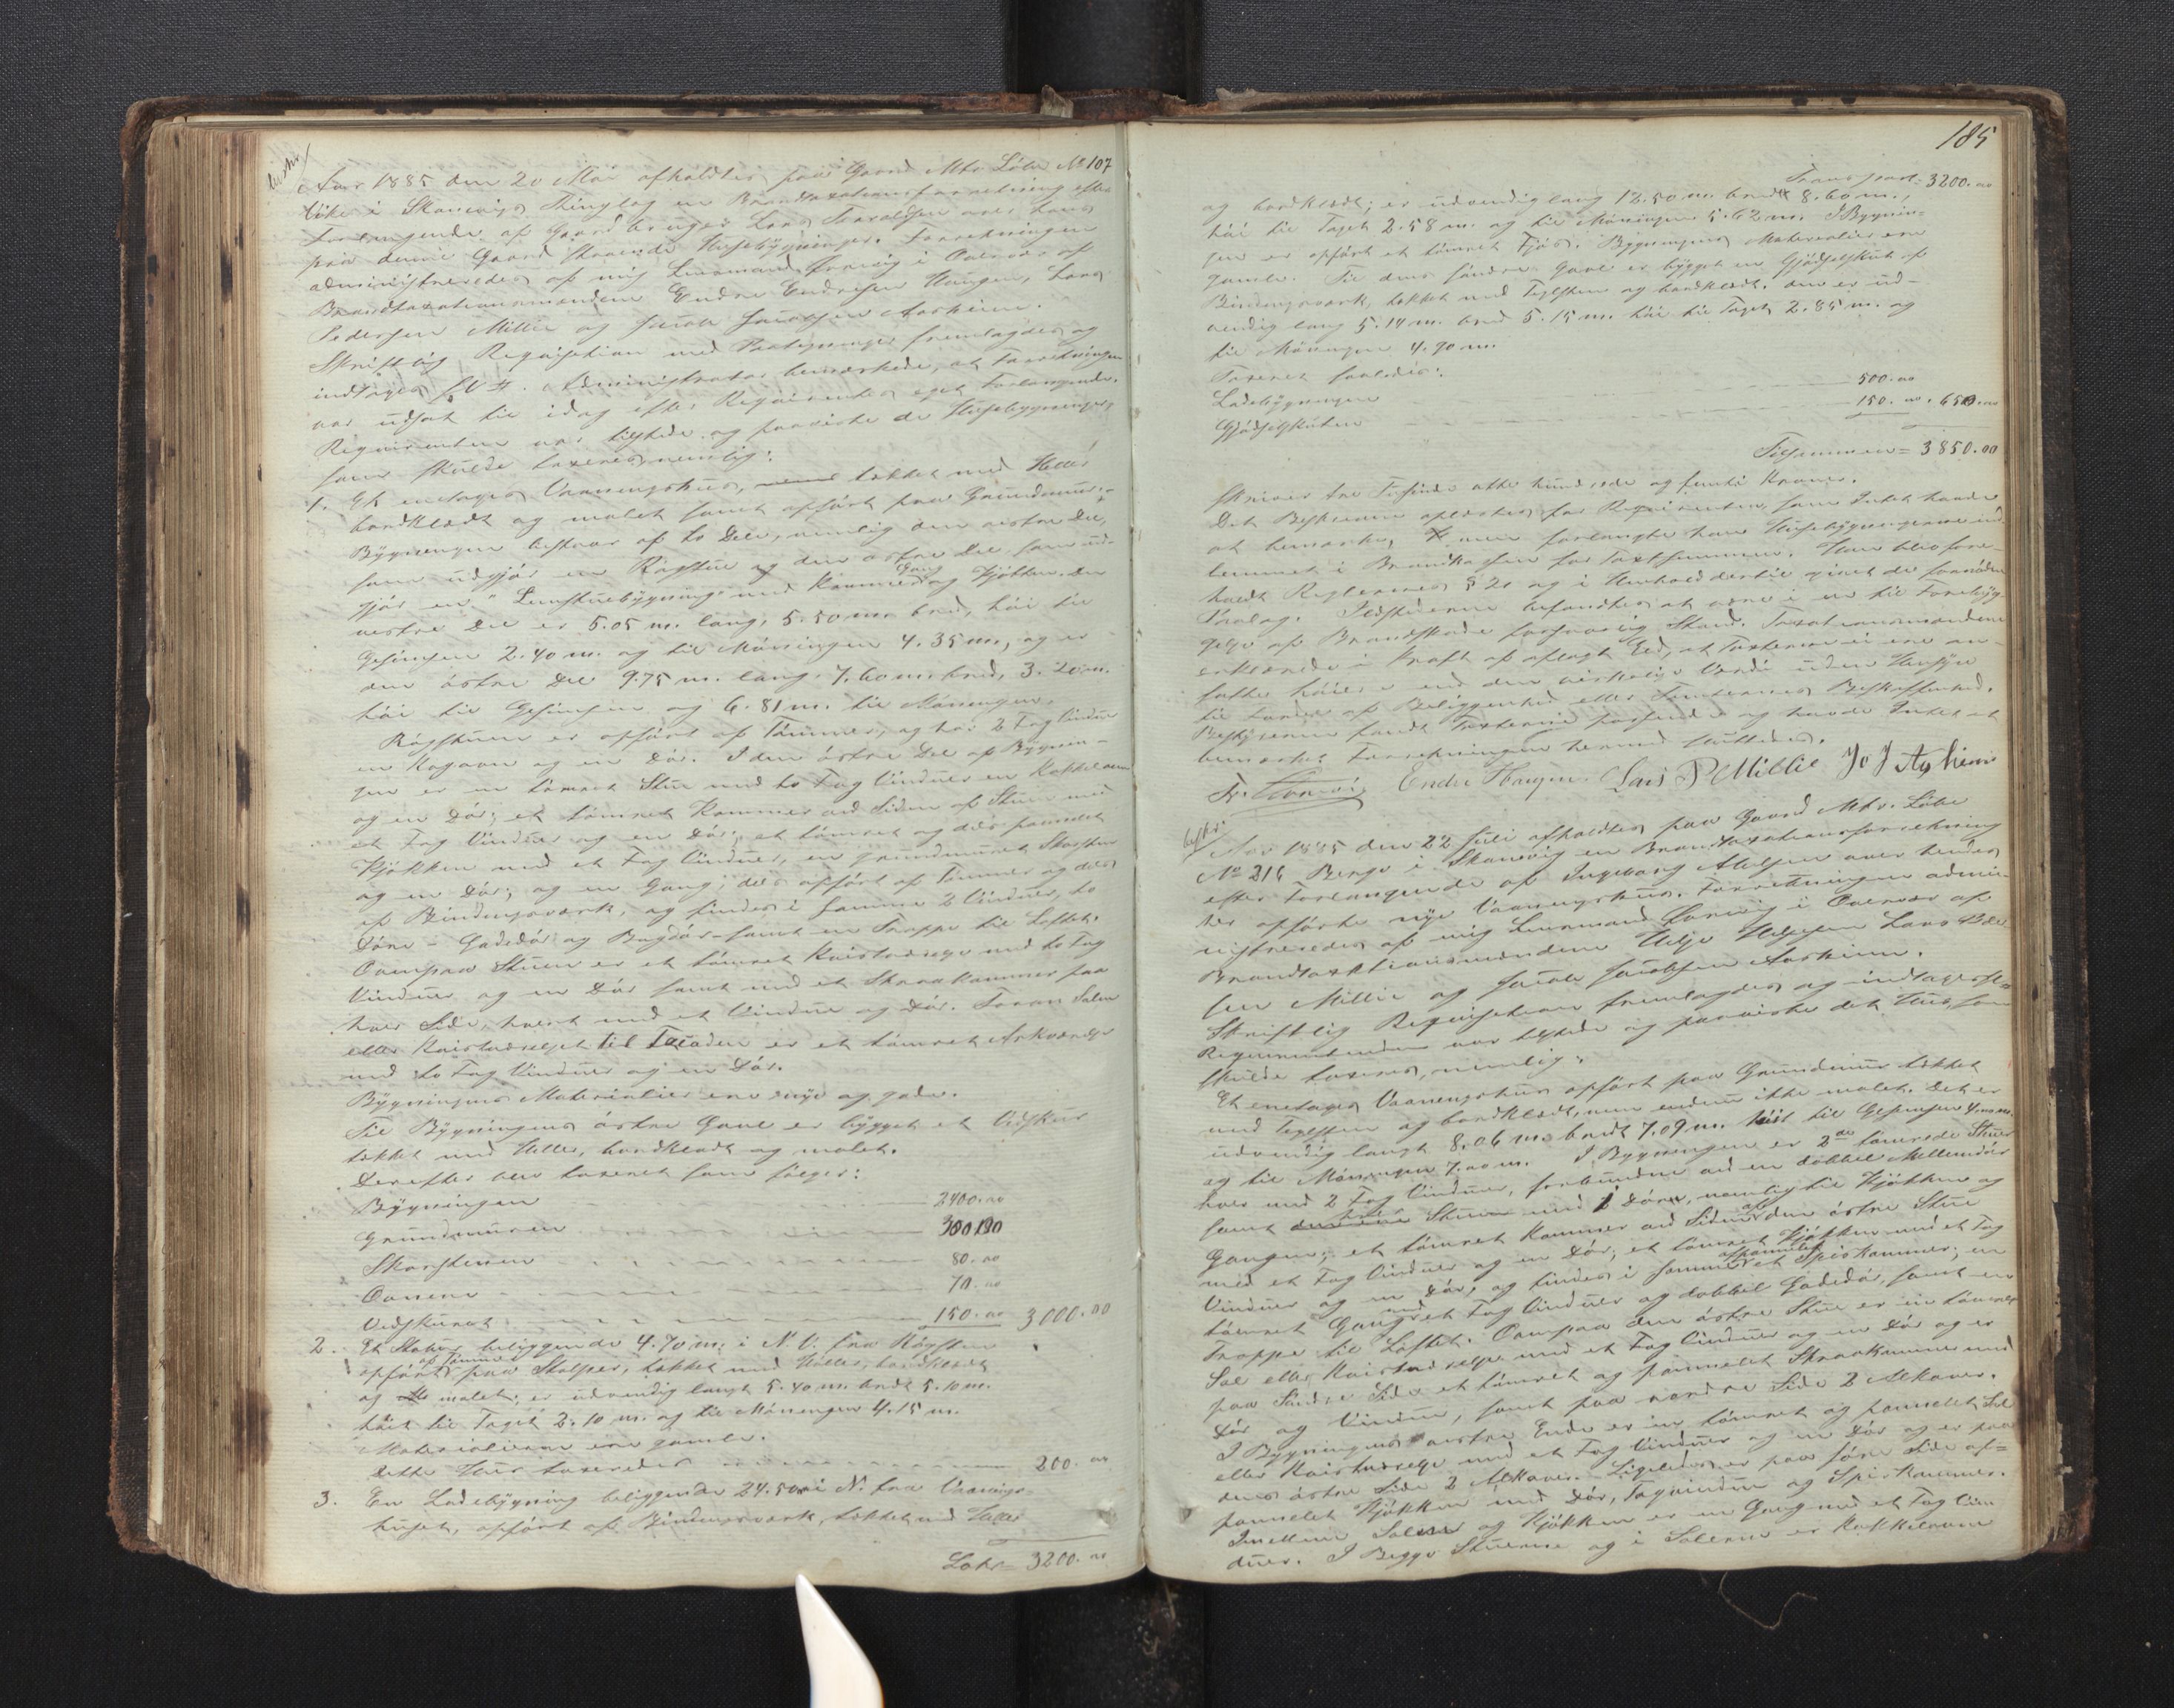 Aar 1885 den 20 Mai afholdtes paa Gaard Mtr. Löbe No 107
i Skonevigs Thinglag en Brandtaxationsforretning efter
Forlangende af Gaardbruger Lars over hans
paa denne Gaard staaende Husebygninger. Forretningen
administreredes af mig Lensmand i Ølen af
Brandtaxationsmændene Endre Endresen Haugen, Lars
Pedersen Millie og Jacob Jacobsen Aasheim.
Skriftlig Requisition med Paategninger fremlagdes og
indtages L. Administrator bemærkede, at Forretningen
var udsat til idag efter Requirentens eget Forlangende.
Requirenten var tilstede og paaviste de Husebygninger,
som skulde taxeres, nemlig:
1. Et enetages Vaaningshus, tækket med Heller
bordklædt og malet samt opført paa Grundmur.
Bygningen bestaar af to Dele, nemlig den vestre Del,
som udgjør en Røgstue og den østre Del som ud-
gjør en Lemstuebygning med Kammer, Gang og Kjøkken. Den
vestre Del er 5.05 m. lang, 5.50 m. bred, høi til
Gesimsen 2.40 m. og til Møningen 4.35 m., og er
den østre Del 9.75 m. lang, 7.60 m. bred, 3.20 m.
høi til Gesimsen og 6.81 m. til Møningen.
Røgstuen er opført af Tømmer, og har 2 Fag Vinduer
en og en Dør. I den østre Del af Bygnin-
gen er en tømret Stue med to Fag Vinduer en Kakkelovn
og en Dør; et tømret Kammer ved Siden af Stuen med
et Fag Vinduer og en Dør; et tømret og dels panelet
Kjøkken med et Fag Vinduer, en grundmuret Skorsten
og en Dør; og en Gang, dels opført af Tømmer og dels
af Bindingsværk, og findes i samme 2 Vinduer, to
Døre - Gadedør og Bagdør - samt en Trappe til Loftet.
Ovenpaa Stuen er et tømret Kvistværelse med to Fag
Vinduer og en Dør samt med et Skraakammer paa
hver Side, hvert med et Vindue og Dør. Foran Salen
eller Kvistværelset til Facaden er et tømret Arkværelse
med to Fag Vinduer og en Dør.
Bygningens Materialier ere nye og gode.
Til Bygningens østre Gavl er bygget et Vedskur
tækket med Heller, bordklædt og malet.
Derefter blev taxeret som følger:
Bygningen 2400.00
Grundmuren 300.00
Skorstenen 80.00
Ovnene 70.00
Vedskuret 150.00 3000.00
2. Et Stabur beliggende 4.70 m. i N.V. fra Røgstuen
opført af Tømmer paa Stolper, tækket med Heller, bordklædt
og malet; er udvendig langt 5.40 m. bredt 5.10 m.
høit til Taget 2.10 m. og til Møningen 4.15 m.
Materialierne ere gamle.
Dette Hus taxeredes 200.00
3. En Ladebygning beliggende 24.50 m i N. fra Vaanings-
huset, opført af Bindingsværk, tækket med Heller
Latus 3200.00
185
Transport 3200.00
og bordklædt; er udvendig lang 12.50 m. bredt 8.60 m.,
høi til Taget 2.58 m. og til Møningen 5.62 m. I Bygnin-
gen er opført et tømret Fjøs. Bygningens Materialier ere
gamle. Til dens søndre Gavl er bygget en Gjødselskut af
Bindingsværk, tækket med Teglsten og bordklædt. Den er ud-
vendig lang 5.14 m. bred 5.15 m. høi til Taget 2.85 m. og
til Møningen 4.90 m.
Taxeret saaledes:
Ladebygningen 500.00
Gjødselskuten 150.00 650.00
Tilsammen = 3850.00
skriver tre Tusinde otte hundrede og femti Kroner.
Det Beskrevne oplæstes for Requirenten, som Intet havde
at bemærke, men forlangte han Husebygningerne ind-
lemmet i Brandkassen for Taxtsummen. Han blev fore-
holdt Reglernes § 20 og i Henhold dertil givet de fornødne
Paalæg. Ildstederne befandtes at være i en til Forebyg-
gelse af Brandskade forsvarlig Stand. Taxationsmændene
erklærede i Kraft af aflagt Ed, at Taxterne ei ere an-
satte høiere end den virkelige Værdi uden Hensyn
til Fordele af Beliggenhed eller Tomternes Beskaffenhed.
Bestyreren fandt Taxterne passende og havde Intet at
bemærke. Forretningen hermed sluttedes.
Endre Haugen. Lars P Millie Jo J Asheim
Aar 1885 den 22 Juli afholdtes paa Gaard Mtr. Löbe
No 216 Berge i Skonevig en Brandtaxationsforretning
efter Forlangende af Ingeborg over hendes
opførte nye Vaaningshus. Forretningen admi-
nistreredes af mig Lensmand i Ølen af
Brandtaxationsmændene Helje Lars Peder-
sen Millie og Jacob Jacobsen Aasheim.
Skriftlig Requisition fremlagdes og indtages
Requirentinden var tilstede og paaviste det Hus, som
skulde taxeres, nemlig:
Et enetages Vaaningshus opført paa Grundmur tækket
med Teglsten og bordklædt, men endnu ikke malet. Det er
udvendig langt 8.06 m. bredt 7.09 m. høit til Gesimsen
og til Møningen 7.00 m. I Bygningen er 2de tømrede Stuer
hver med 2 Fag Vinduer, forbundne ved en dobbel Mellemdør
samt Stuen med Døre, nemlig til Kjøkken og
Gangen; et tømret Kammer ved Siden af den østre Stue
med et Fag Vinduer og en Dør; et tømret Kjøkken med et Fag
Vinduer og en Dør, og findes i samme et afpanelet Spiskammer; en
tømret Gang med et Fag Vinduer og dobbel Gadedør, samt en
Trappe til Loftet. Ovenpaa den østre Stue er en tømret
Sal eller Kvistværelse med et Fag Vinduer og en Dør og er
paa Søndre Side et tømret og panelet Skraakammer med
Dør og Vindue, samt paa nordre Side 2 Alkover.
I Bygningens vestre Ende er en tømret og panelet Sal
eller Kvistværelse med et Fag Vinduer og en Dør og er paa
dens østre Side 2 Alkover. Ligeledes er paa søre Side af-
panelet Kjøkken med Dør, Fagvindue og Spiskammer.
Imellem Salene og Kjøkken er en Gang med et Fag Vin-
duer. I Begge Stuerne og i Salene er Kakkelovne